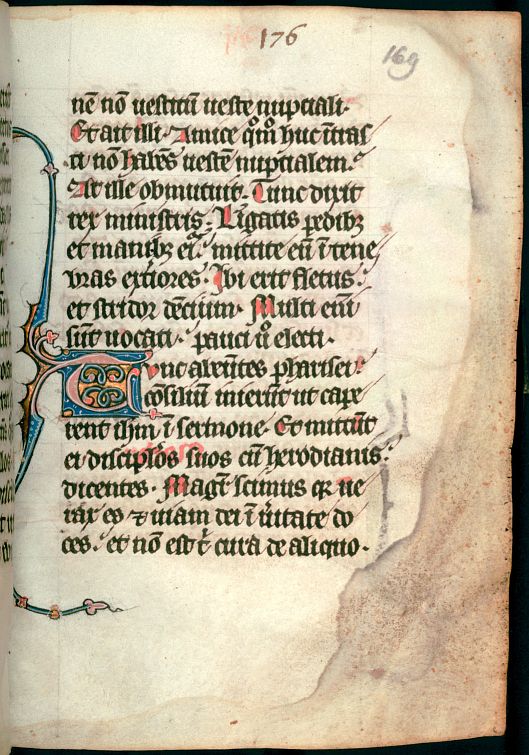 176
169
nē nō uestitū ueste nuptiali.
Et ait illi. Amice qͦmͦ huc ītras
ti nō habēs uestē nuptialem.
At ille obmutuit. Tunc dixit
rex ministris. Ligatis pedibꝫ
et manibꝫ eiꝰ. mittite eū ī tene
bras exͭiores. Ibi erit fletus.
et stridor dēcium. Multi enī
sūt uocati. pauci uͦ electi.
Tunc abeūtes pharisei.
cōsiliū inierūt ut cape
rent ihm̄ ī sermone. Et mittūt
ei discipl̓os suos cū herodianis.
dicentes. Magr̄ scimus qꝛ ue
rax es ⁊ uiam dei ī ùitate do
ces. et nō est t̄ cura de aliquo.